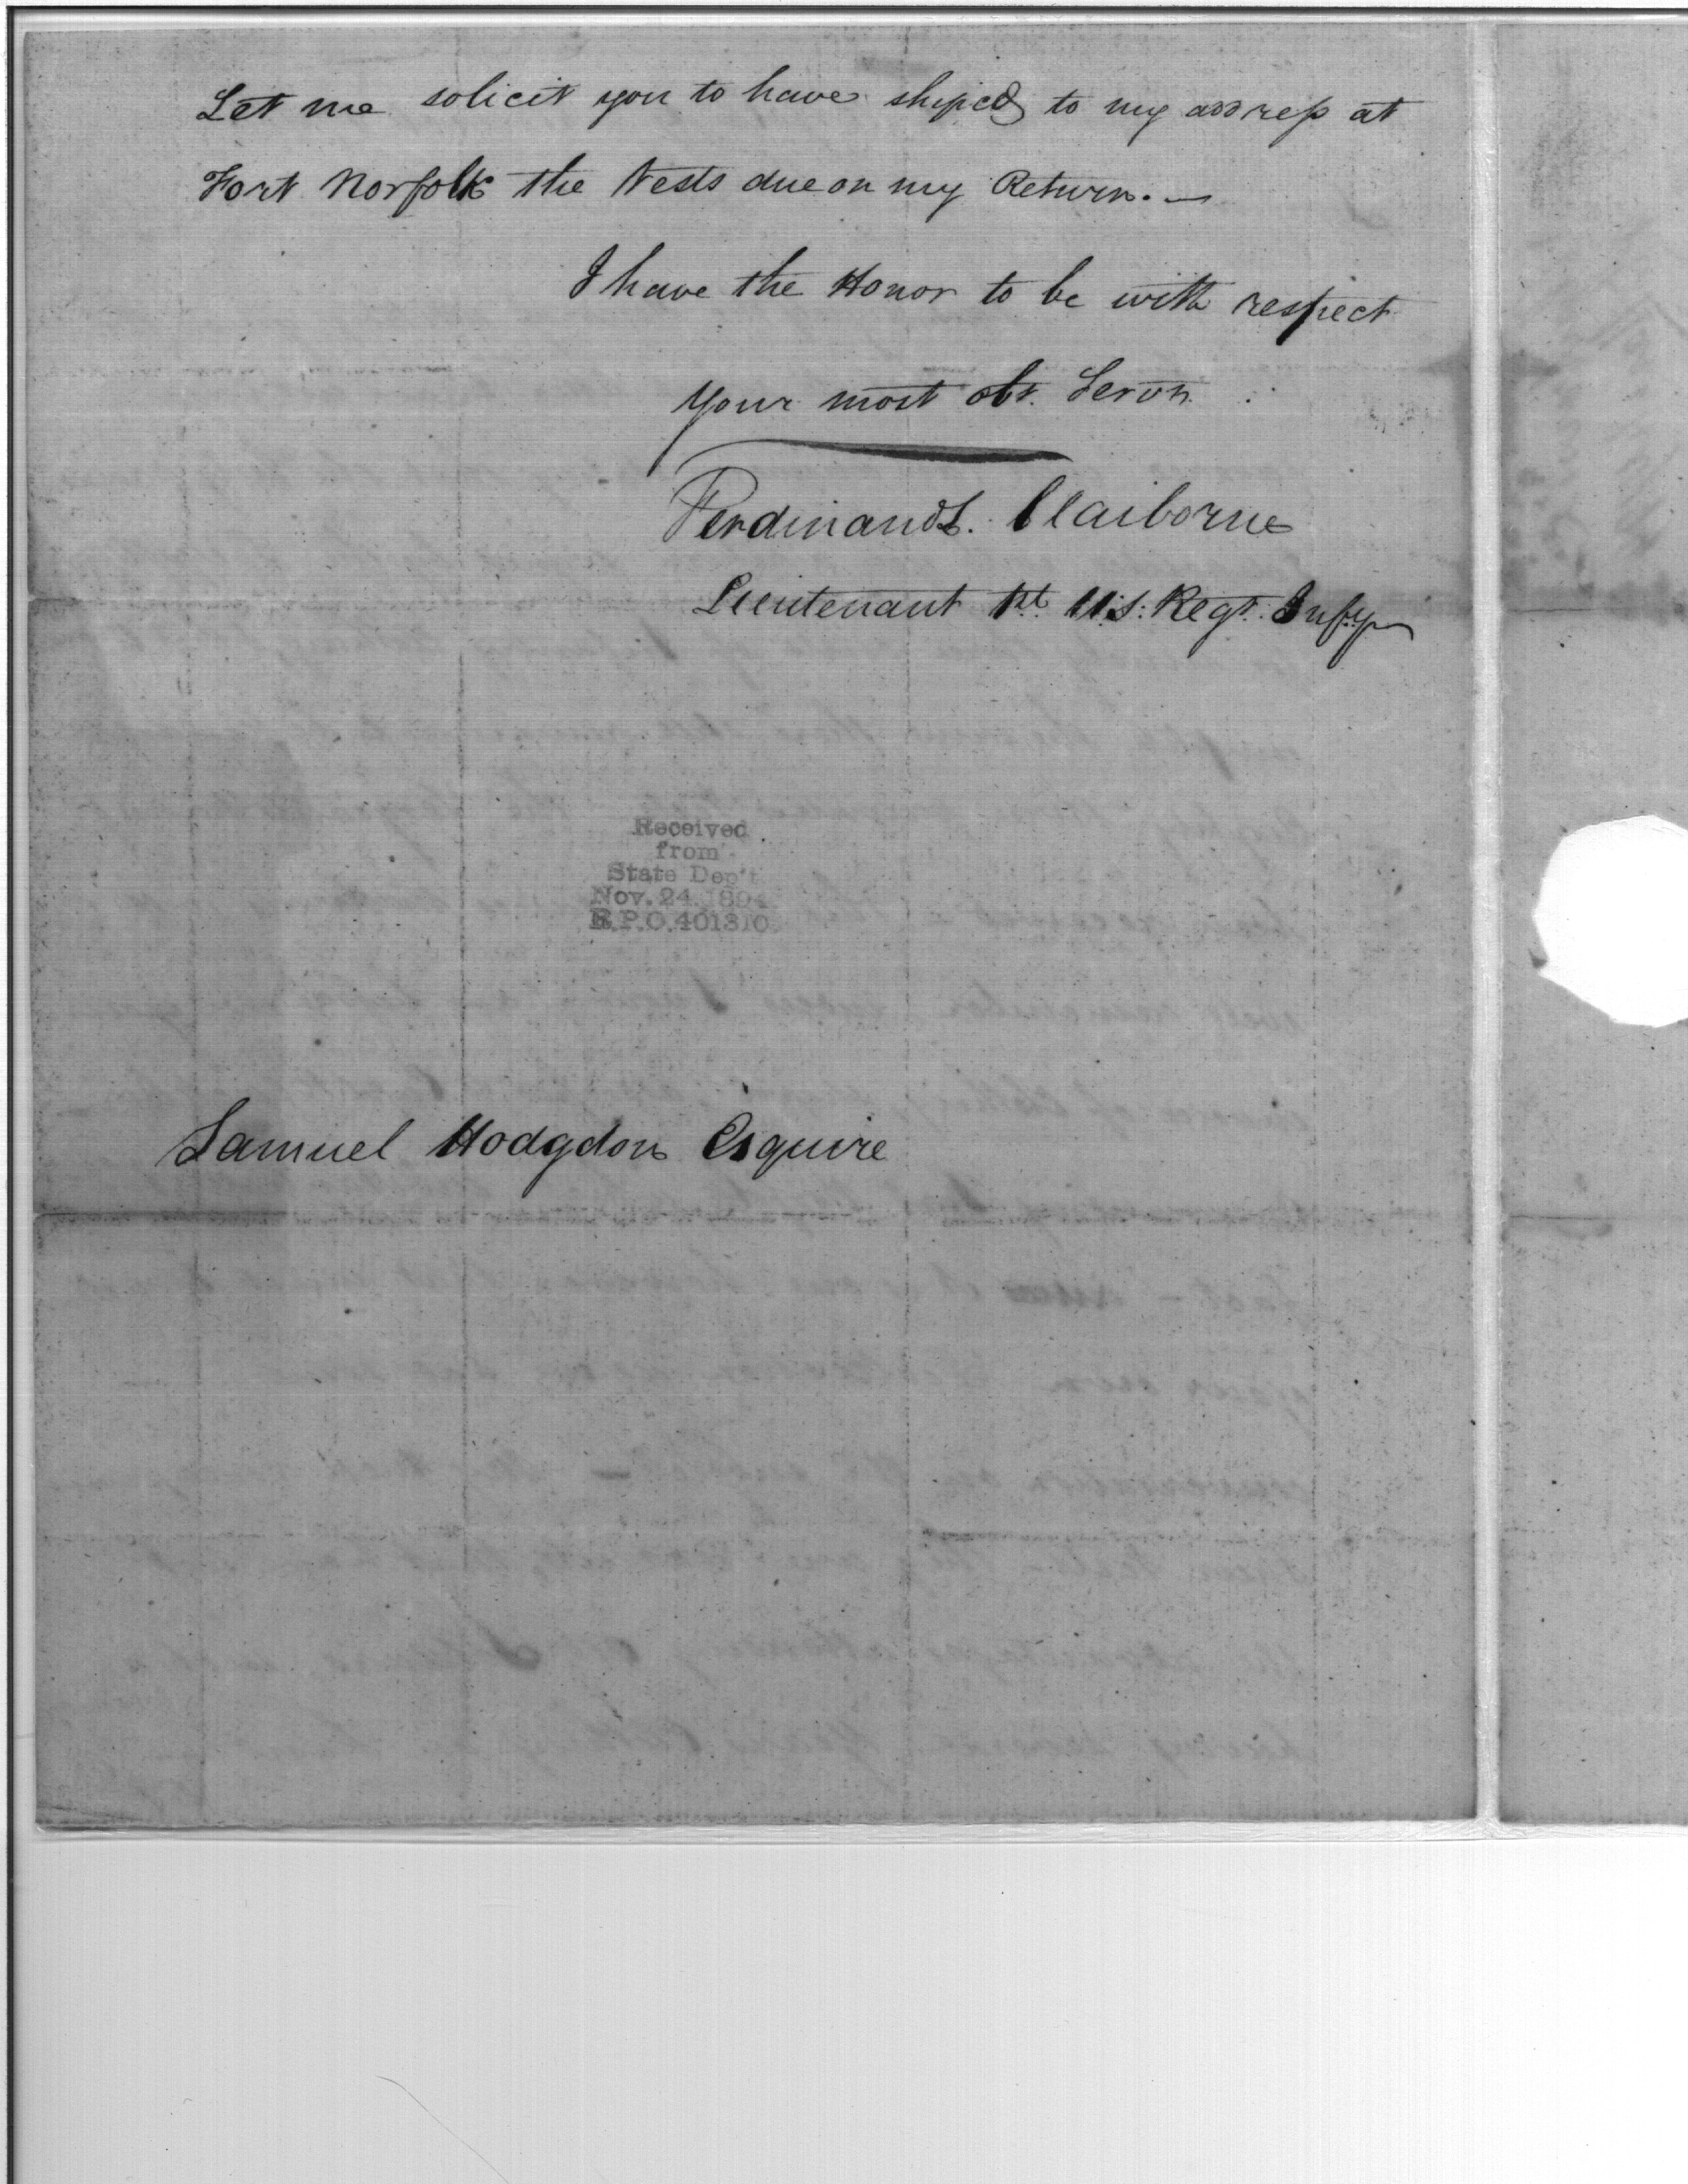 Let me solicit you to have shiped to my address at
Fort Norfolk the Vests due on my Return. —
I have the Honor to be with respect
Your most obt. Servt.
Ferdinand L. Claiborne
Lieutenant 1st U.S. Regt. Infy
Received
from
State Dep't
Nov. 24. 1894
R.P.O. 401310
Samuel Hodgdon Esquire